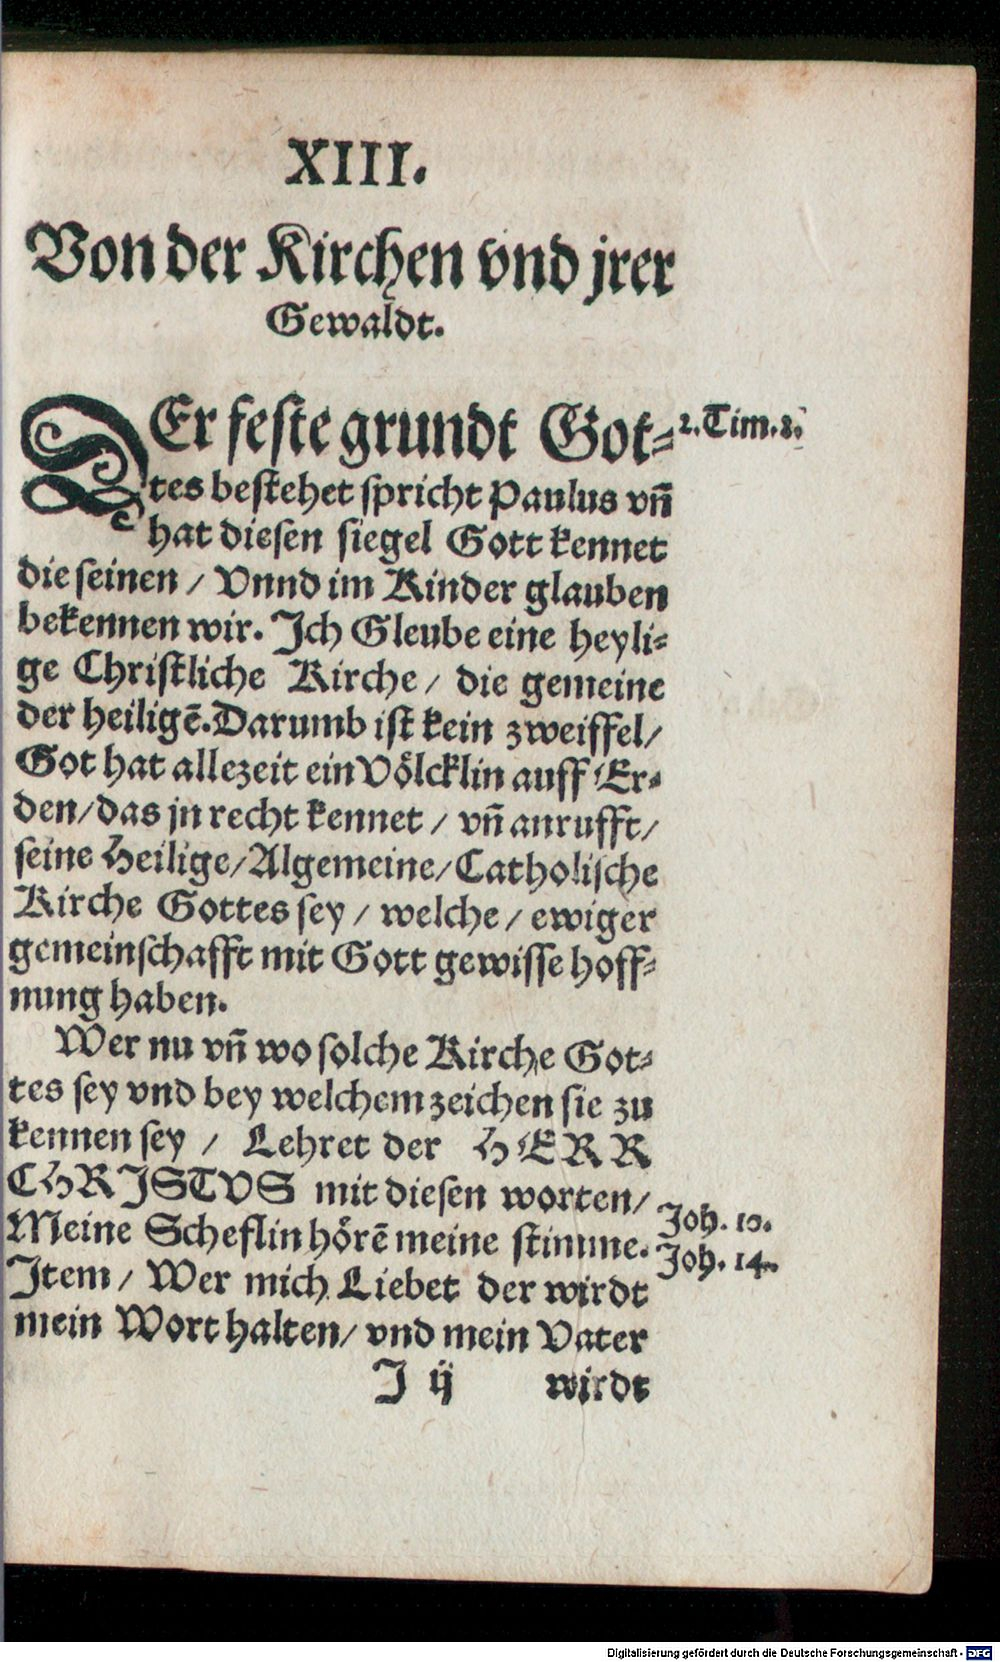 XIII.
Von der Kirchen vnd jrer
Gewaldt.
DEr feste grundt Got-
2. Tim. 2.
tes bestehet spricht Paulus vñ
hat diesen siegel Gott kennet
die seinen / Vnnd im Kinder glauben
bekennen wir. Ich Gleube eine heyli-
ge Christliche Kirche / die gemeine
der heiligẽ. Darumb ist kein zweiffel /
Got hat allezeit ein Völcklin auff Er-
den / das jn recht kennet / vñ anrufft /
seine Heilige / Algemeine / Catholische
Kirche Gottes sey / welche / ewiger
gemeinschafft mit Gott gewisse hoff-
nung haben.
Wer nu vñ wo solche Kirche Got-
tes sey vnd bey welchem zeichen sie zu
kennen sey / Lehret der HERR
CHRISTVS mit diesen worten /
Meine Scheflin hörẽ meine stimme.
Joh. 10.
Item / Wer mich Liebet der wirdt
Joh. 14.
mein Wort halten / vnd mein Vater
I ij wirdt
Digitalisierung gefördert durch die Deutsche Forschungsgemeinschaft - DFG